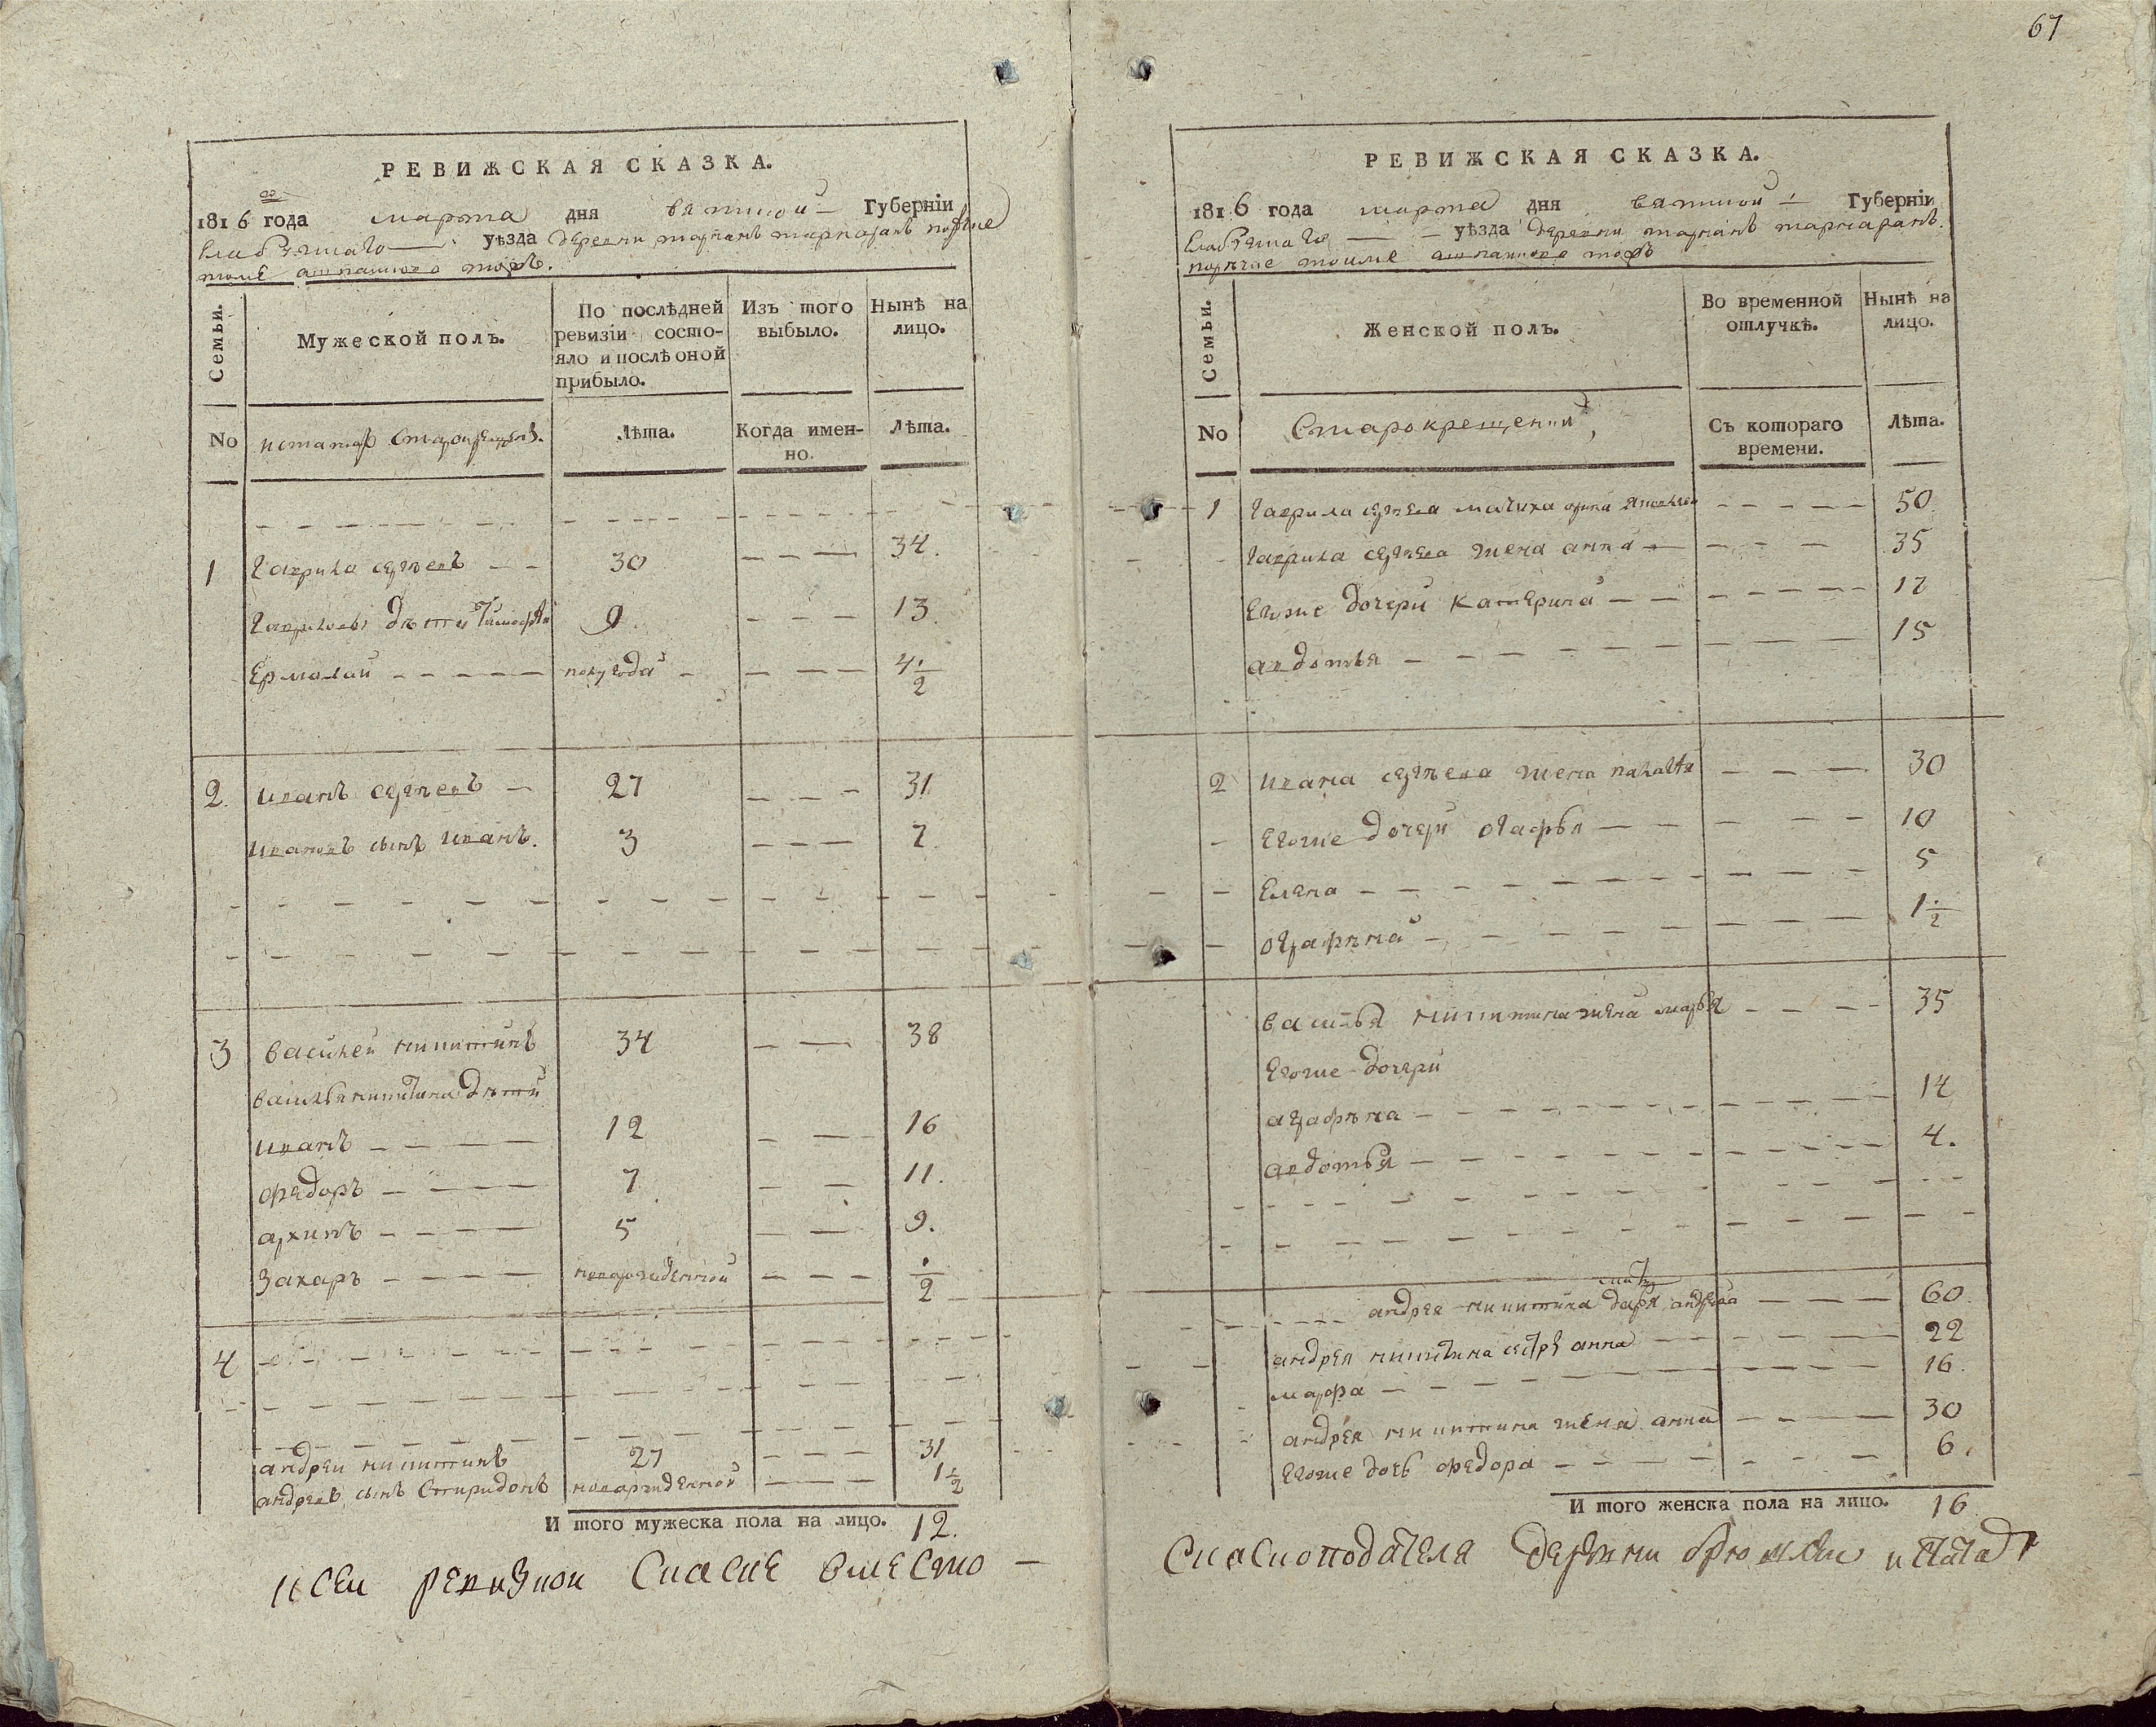 67
РЕВИЖСКАЯ СКАЗКА.
1816 года марта дня вятской Губерніи
уѣзда деревни
Семьи.
Мужеской полъ.
По послѣдней ревизіи состо-
яло и послѣ оной прибыло.
Изъ того выбыло.
Нынѣ на лицо.
No
Лѣта.
Когда имен-
но.
Лѣта.
1 Гаврила сергѣевъ 30 34.
Гавриловы дѣти Тимофѣй 9. 13.
Ермолай полугода 4 1/2
2. иванъ сергѣевъ 27 31
ивановъ сынъ иванъ. 3 7.
3 василей никитинъ 34 38
василья никитина дѣти
иванъ 12 16
федоръ 7 11.
архипъ 5 9.
Захаръ новорожденной 1/2
4
андреи никитинъ 27 31
андреевъ сынъ Спиридонъ новорожденной 1 1/2
И того мужеска пола на лицо. 12.
к сеи ревизкои Скаске вместо
РЕВИЖСКАЯ СКАЗКА.
1816 года марта дня вятской Губерніи
уѣзда деревни
Семьи.
Женской полъ.
Во временной отлучкѣ.
Нынѣ на лицо.
No
Старокрещении,
Съ котораго времени.
Лѣта.
1 Гаврила сергѣева мачиха 50
Гаврила сергѣева жена анна 35
Евоже дочери катерина 17
авдотья 15
2 ивана сергѣева жена палагѣя 30
Евоже дочери огафья 10
Елена 5
ографѣна 1 1/2
василья никитина жена марья 35
Евоже дочери
аграфѣна 14
авдотья 4.
мать
андрея никитина дарья 60.
андрея никитина сестре анна 22
марфа 16.
андрея никитина жена анна 30
Евоже дочь федора 6.
И того женска пола на лицо. 16
Скаскоподателя деревни